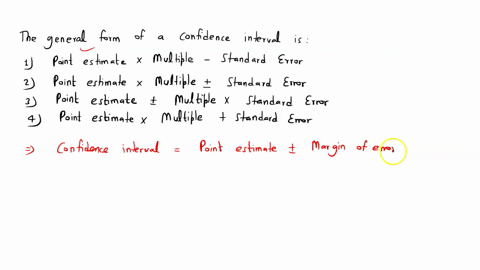 The general form of a confidence interval is :
1) Point estimate × Multiple - Standard Error
2) Point estimate × Multiple ± Standard Error
3) Point estimate ± Multiple × Standard Error
4) Point estimate × Multiple + Standard Error
⇒ Confidence interval = Point estimate ± Margin of error